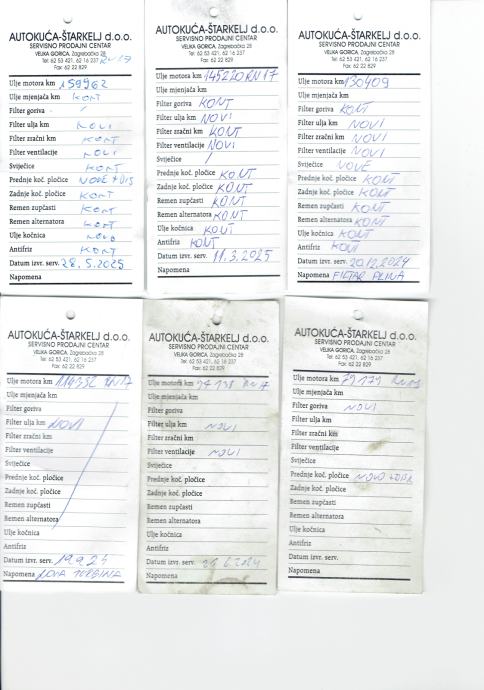 AUTOKUĆA-ŠTARKELJ d.o.o.
SERVISNO PRODAJNI CENTAR
VELIKA GORICA, Zagrebačka 28
Tel: 62 53 421, 62 16 237
Fax: 62 22 829
RN17
Ulje motora km 159962
Ulje mjenjača km KONT
Filter goriva
Filter ulja km NOVI
Filter zračni km KONT
Filter ventilacije NOVI
Svijećice KONT
Prednje koč. pločice NOVE + DIS
Zadnje koč. pločice KONT
Remen zupčasti KONT
Remen alternatora KONT
Ulje kočnica NOVO
Antifriz KONT
Datum izvr. serv. 28.5.2025
Napomena
AUTOKUĆA-ŠTARKELJ d.o.o.
SERVISNO PRODAJNI CENTAR
VELIKA GORICA, Zagrebačka 28
Tel: 62 53 421, 62 16 237
Fax: 62 22 829
Ulje motora km 145220 RN17
Ulje mjenjača km
Filter goriva KONT
Filter ulja km NOVI
Filter zračni km KONT
Filter ventilacije NOVI
Svijećice /
Prednje koč. pločice KONT
Zadnje koč. pločice KONT
Remen zupčasti KONT
Remen alternatora KONT
Ulje kočnica KONT
Antifriz KONT
Datum izvr. serv. 11.3.2025
Napomena
AUTOKUĆA-ŠTARKELJ d.o.o.
SERVISNO PRODAJNI CENTAR
VELIKA GORICA, Zagrebačka 28
Tel: 62 53 421, 62 16 237
Fax: 62 22 829
Ulje motora km 130409
Ulje mjenjača km
Filter goriva KONT
Filter ulja km NOVI
Filter zračni km NOVI
Filter ventilacije NOVI
Svijećice NOVE
Prednje koč. pločice KONT
Zadnje koč. pločice KONT
Remen zupčasti KONT
Remen alternatora KONT
Ulje kočnica KONT
Antifriz KONT
Datum izvr. serv. 20.12.2024
Napomena FILTAR PLINA
AUTOKUĆA-ŠTARKELJ d.o.o.
SERVISNO PRODAJNI CENTAR
VELIKA GORICA, Zagrebačka 28
Tel: 62 53 421, 62 16 237
Fax: 62 22 829
Ulje motora km RN17
Ulje mjenjača km
Filter goriva
Filter ulja km NOVI
Filter zračni km
Filter ventilacije
Svijećice
Prednje koč. pločice
Zadnje koč. pločice
Remen zupčasti
Remen alternatora
Ulje kočnica
Antifriz
Datum izvr. serv. 19.9.24
Napomena NOVA TURBINA
AUTOKUĆA-ŠTARKELJ d.o.o.
SERVISNO PRODAJNI CENTAR
VELIKA GORICA, Zagrebačka 28
Tel: 62 53 421, 62 16 237
Fax: 62 22 829
Ulje motora km
Ulje mjenjača km
Filter goriva
Filter ulja km NOVI
Filter zračni km
Filter ventilacije NOVI
Svijećice
Prednje koč. pločice
Zadnje koč. pločice
Remen zupčasti
Remen alternatora
Ulje kočnica
Antifriz
Datum izvr. serv. 21.6.2024
Napomena
AUTOKUĆA-ŠTARKELJ d.o.o.
SERVISNO PRODAJNI CENTAR
VELIKA GORICA, Zagrebačka 28
Tel: 62 53 421, 62 16 237
Fax: 62 22 829
Ulje motora km 79179
Ulje mjenjača km
Filter goriva NOVI
Filter ulja km
Filter zračni km
Filter ventilacije
Svijećice
Prednje koč. pločice NOVO +
Zadnje koč. pločice
Remen zupčasti
Remen alternatora
Ulje kočnica
Antifriz
Datum izvr. serv.
Napomena